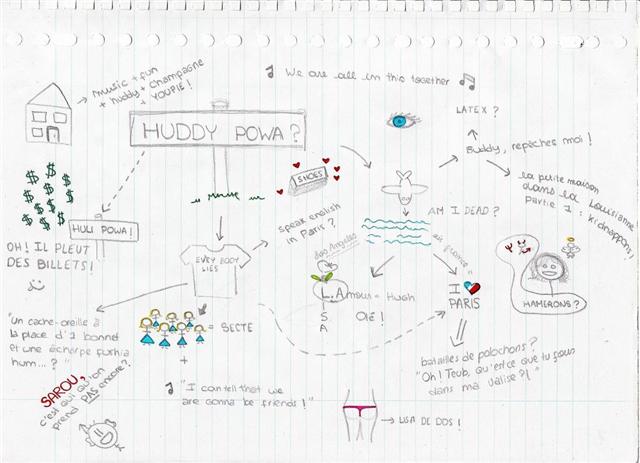 music + fun
+ huddy + champagne
+ YOUPIE !
We are all in this together
HUDDY POWA ?
LATEX ?
Buddy, repêches moi !
SHOES
la petite maison
dans la Louisianne
Partie 1 : kidnapping
$ $ $ $ $ $ $ $ $ $
HULI POWA !
OH ! IL PLEUT
DES BILLETS !
AM I DEAD ?
Speak english
in Paris ?
EVERY BODY
LIES
Los Angeles
L.Amour = Hugh
I
S
A
OLÉ !
air france
I ♥
PARIS
HAMERONS ?
= SECTE
+
"un cache-oreille à
la place d'1 bonnet
et une écharpe fushia
hum... ?"
batailles de polochons ?
"Oh ! Teub, qu'est ce que tu fous
dans ma valise ?!"
SAROU,
c'est qui qu'on
prend PAS encore ?
"I can tell that we
are gonna be friends !"
LISA DE DOS !